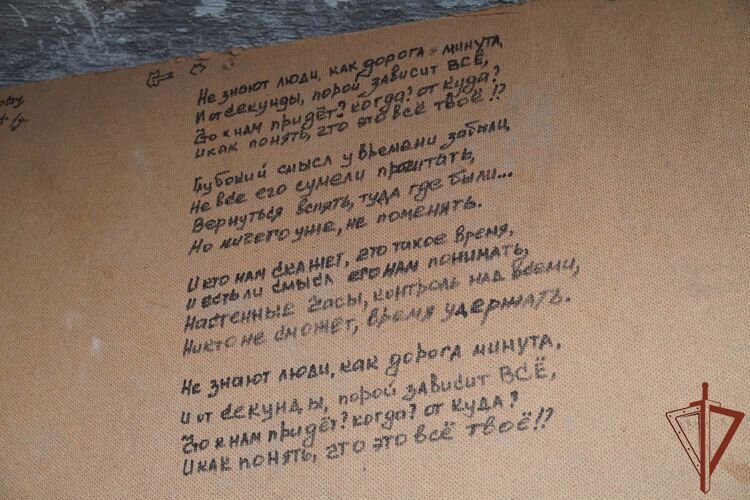 Не знают люди, как дорога минута,
И от секунды, порой зависит ВСЁ,
Что к нам придёт? когда? от куда?
И как понять, что это всё твоё!?
Глубокий смысл у времени забыли,
Не все его сумели прочитать,
Вернуться вспять, туда где были...
Но ничего уже, не поменять.
И кто нам скажет, что такое время,
и есть ли смысл его нам понимать,
Настенные часы, контроль над всеми,
Никто не сможет, время удержать.
Не знают люди, как дорога минута,
и от секунды, порой зависит ВСЁ,
Что к нам придёт? когда? от куда?
И как понять, что это всё твоё!?